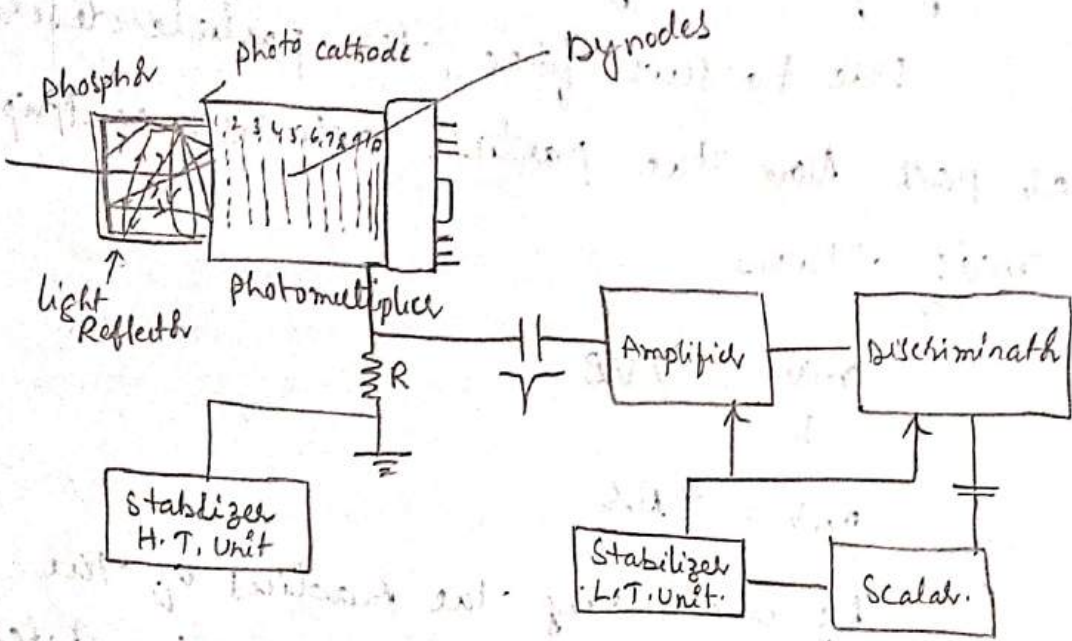 photo cathode
Dynodes
phosphor
1, 2, 3, 4, 5, 6, 7, 8, 9, 10
light
Reflector
photomultiplier
R
Amplifier
Discriminator
Stabilizer
H. T. Unit
Stabilizer
L.T. Unit.
Scalar.